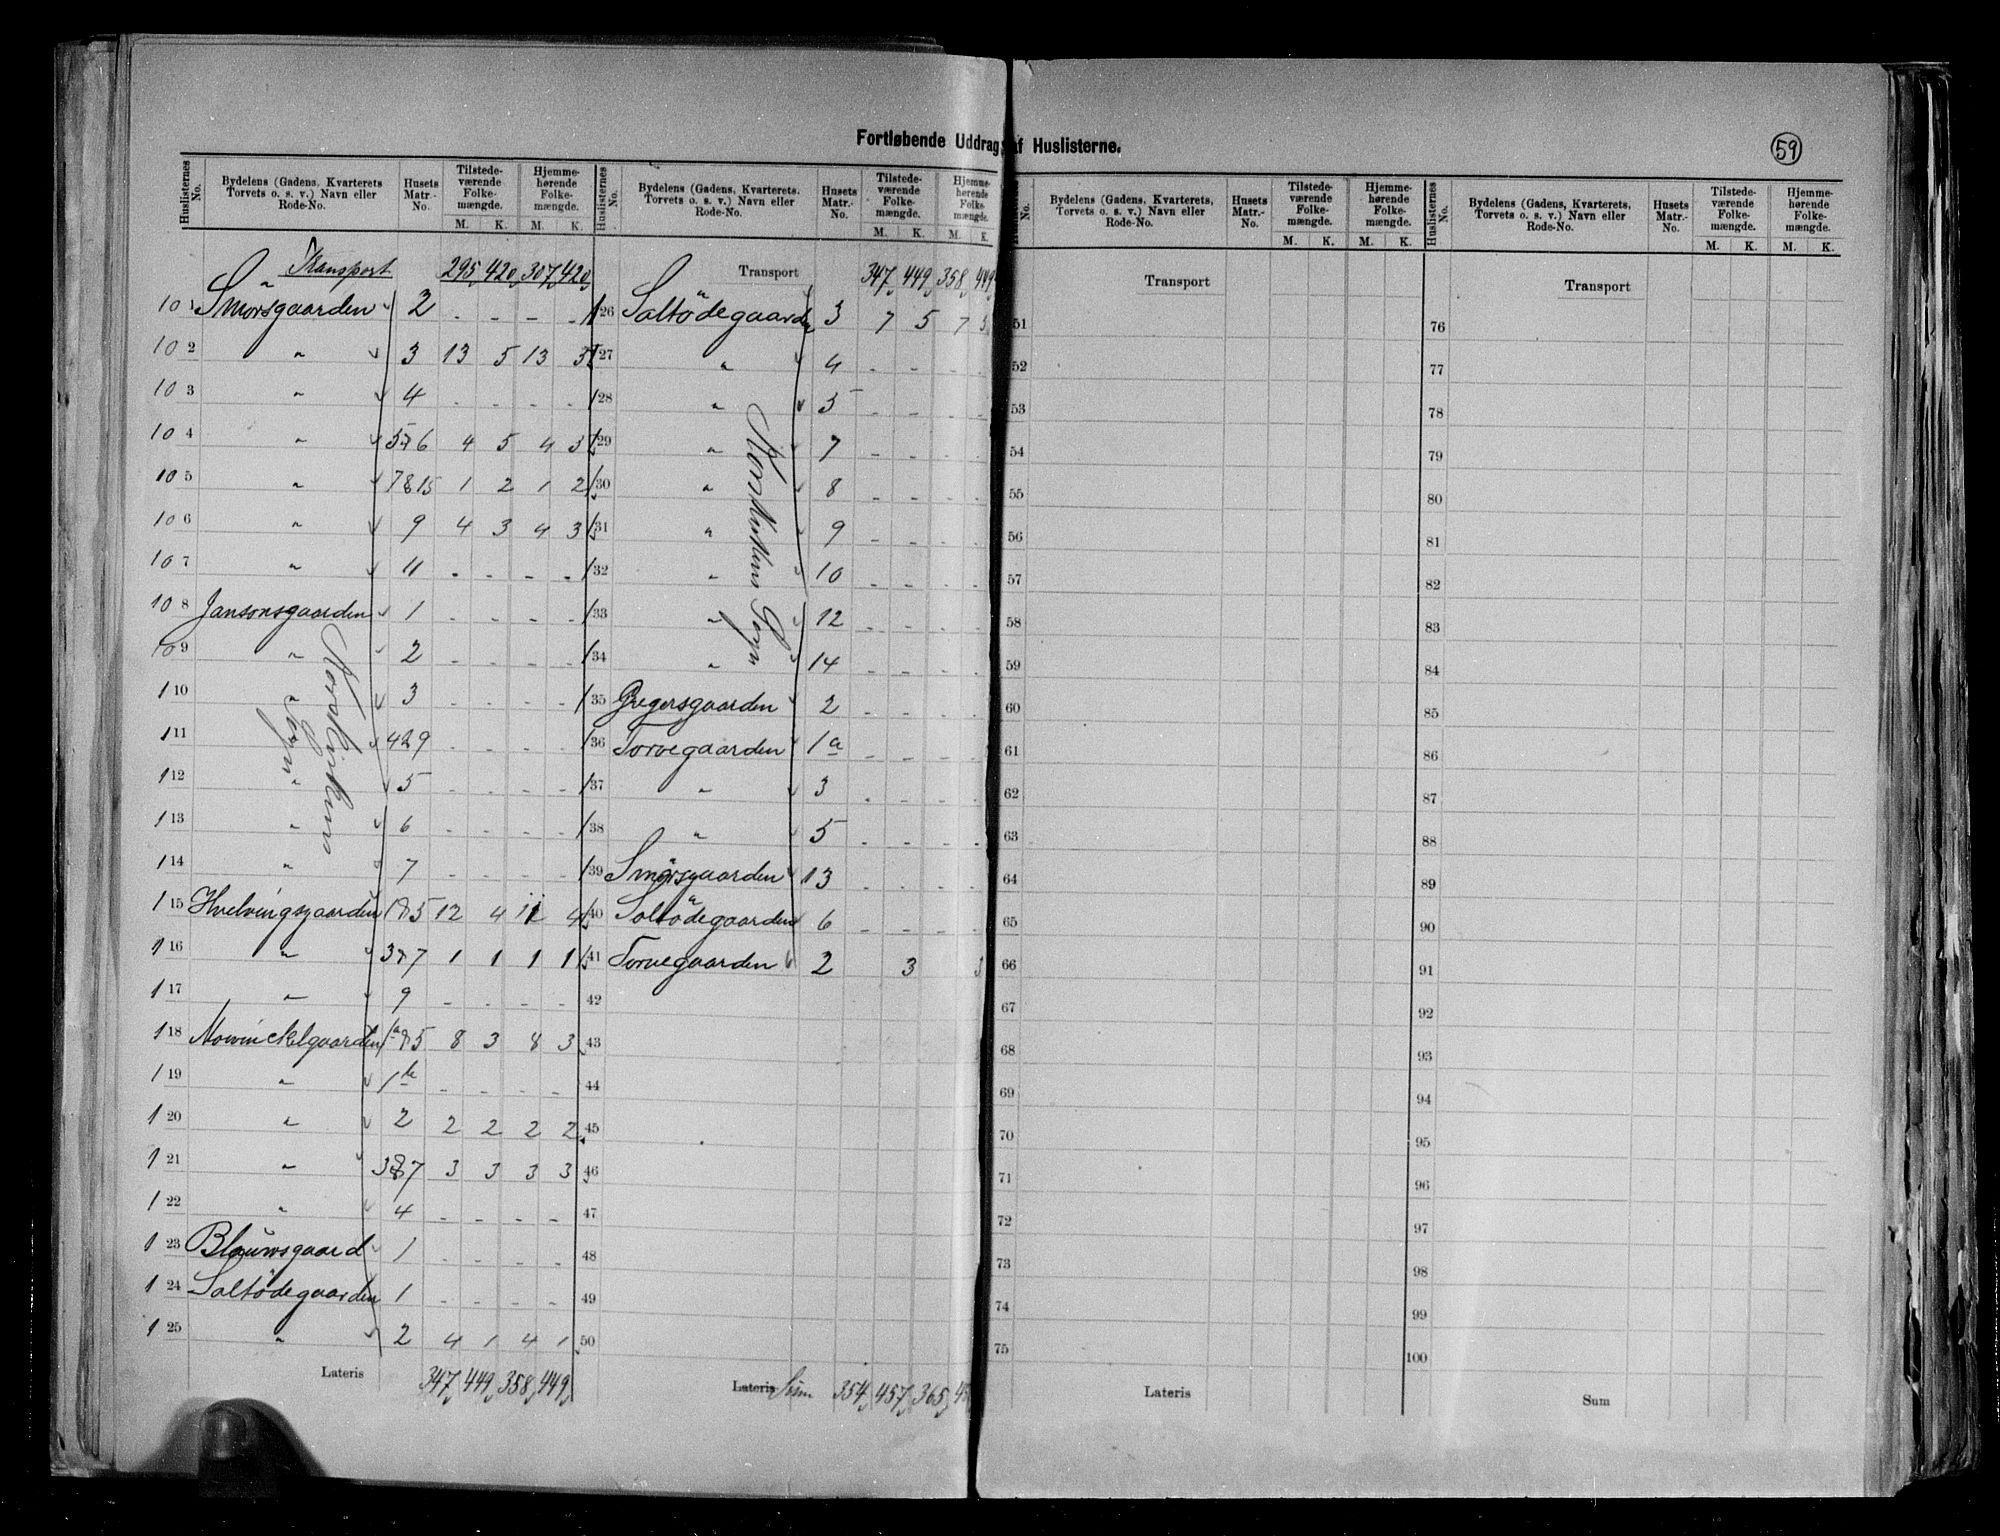 Fortløbende Uddrag af Huslisterne.
59
Huslisternes No. Bydelens (Gadens, Kvarterets Torvets o. s. v.) Navn eller Rode-No. Husets Matr.-No. Tilstede-værende Folke-mængde. M. K. Hjemme-hørende Folke-mængde. M. K.
Transport 295 420 307 420
101 Smörsgaarden 2 - - - -
102 " 3 13 5 13 5
103 " 4 - - - -
104 " 5 & 6 4 5 4 5
105 " 7 8 15 1 2 1 2
106 " 9 4 3 4 3
107 " 11 - - - -
108 Jansonsgaarden 1 - - - -
109 " 2 - - - -
110 " 3 - - - -
111 " 4 & 9 - - - -
112 " 5 - - - -
113 " 6 - - - -
114 " 7 - - - -
115 Hvelvingsgaarden 1 & 5 12 4 12 4
116 " 3 & 7 1 1 1 1
117 " 9 - - - -
118 Mowinckelgaarden 1a & 5 8 3 8 3
119 " 1b - - - -
120 " 2 2 2 2 2
121 " 3 & 7 3 3 3 3
122 " 4 - - - -
123 Blauwsgaard 1 - - - -
124 Saltödegaarden 1 - - - -
125 " 2 4 1 4 1
Korskirkens Sogn
Lateris 347 449 358 449
Huslisternes No. Bydelens (Gadens, Kvarterets, Torvets o. s. v.) Navn eller Rode-No. Husets Matr.-No. Tilstede-værende Folke-mængde. M. K. Hjemme-hørende Folke-mængde. M. K.
Transport 347 449 358 449
126 Saltödegaarden 3 7 5 7 5
127 " 4 - - - -
128 " 5 - - - -
129 " 7 - - - -
130 " 8 - - - -
131 " 9 - - - -
132 " 10 - - - -
133 " 12 - - - -
134 " 14 - - - -
135 Gregersgaarden 2 - - - -
136 Torvegaarden 1a - - - -
137 " 3 - - - -
138 " 5 - - - -
139 Smörsgaarden 13 - - - -
140 Saltödegaarden 6 - - - -
141 Torvegaarden 2 3 3
42
43
44
45
46
47
48
49
50
Korskirkens Sogn
Lateris Sum 354 457 365
No. Bydelens (Gadens, Kvarterets, Torvets o. s. v.) Navn eller Rode-No. Husets Matr.-No. Tilstede-værende Folke-mængde. M. K. Hjemme-hørende Folke-mængde. M. K.
Transport
51
52
53
54
55
56
57
58
59
60
61
62
63
64
65
66
67
68
69
70
71
72
73
74
75
Lateris
Huslisternes No. Bydelens (Gadens, Kvarterets, Torvets o. s. v.) Navn eller Rode-No. Husets Matr.-No. Tilstede-værende Folke-mængde. M. K. Hjemme-hørende Folke-mængde. M. K.
Transport
76
77
78
79
80
81
82
83
84
85
86
87
88
89
90
91
92
93
94
95
96
97
98
99
100
Sum